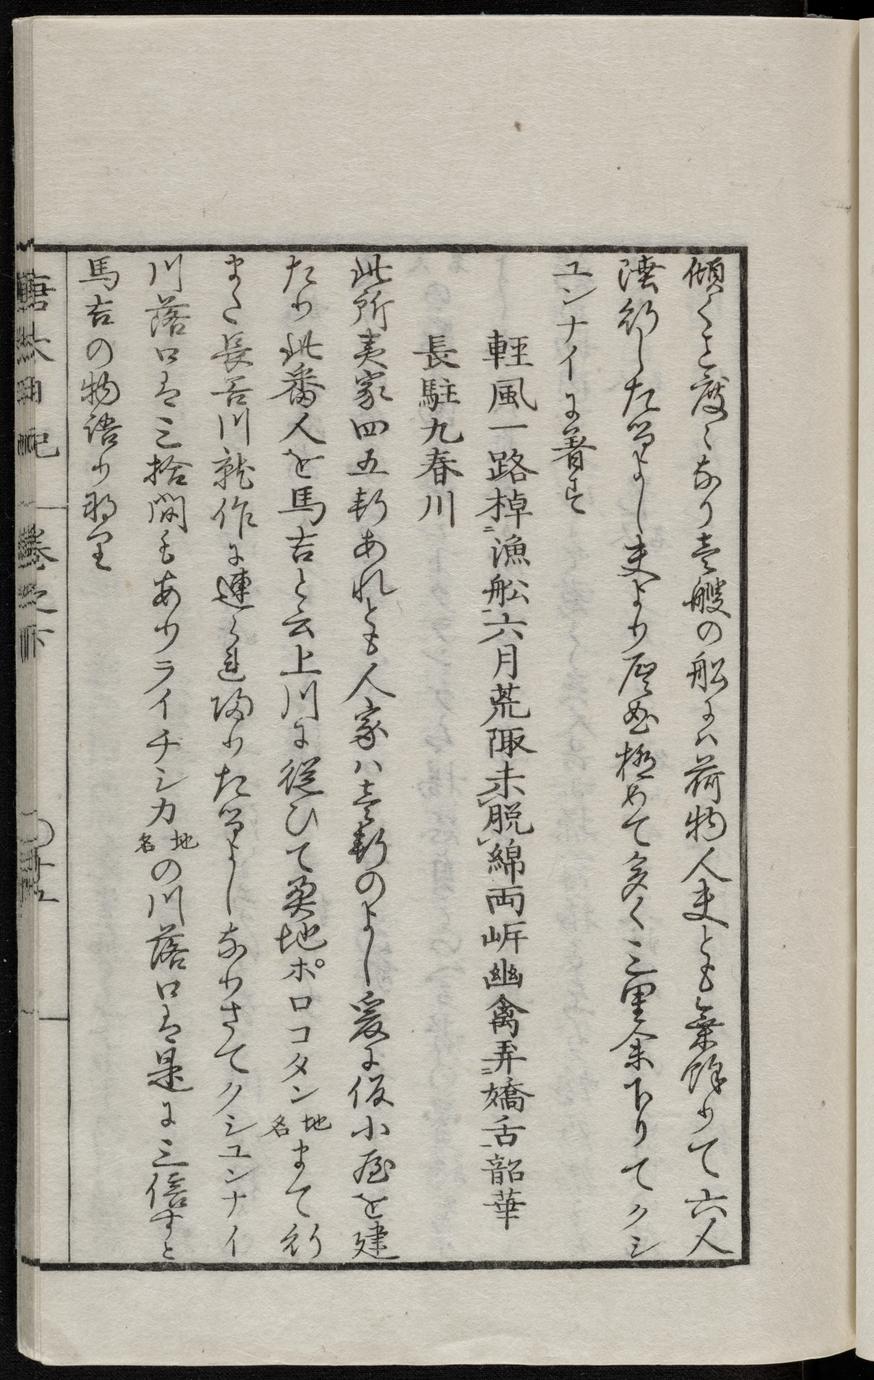 傾くこと度々なり壱艘の船にハ荷物人夫とも乗餘りて六人
陸行したるよし夫より屈曲極めて多く三里余下りてクシ
ユンナイに着す
輕風一路棹ニ漁船一六月荒陬未レ脱レ綿両岸幽禽弄ニ嬌舌一韶華
長駐九春川
此所夷家四五軒あれとも人家ハ壱軒のよし爰に仮小屋を建
たり此番人を馬吉と云上川に従ひて奥地ポロコタン地名まて行
また長吉川就作に連られ帰りたるよしなりさてクシユンナイ
川落口は三拾間もありライチシカ地名の川落口は是に三倍すと
馬吉の物語り
唐太日記 巻之下 〇廿五